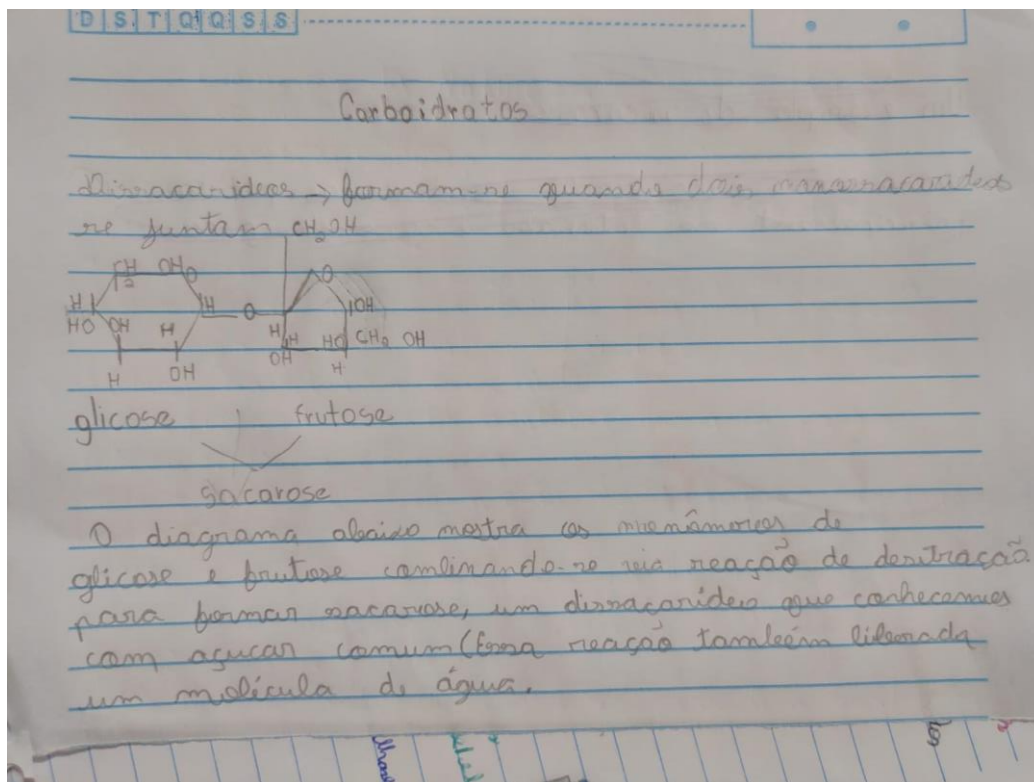 D S T Q Q S S
Carboidratos
Dissacarideos → formam-se quando dois monossacarideos
se juntam CH2OH
CH2 OH O O
H H O OH
HO OH H H H HO CH2 OH
OH
H OH H
glicose frutose
sacarose
O diagrama abaixo mostra os monômeros de
glicose e frutose combinando-se via reação de desitração
para formar sacarose, um dissacarideo que conhecemos
com açucar comum (Essa reação também liberada
um molécula de água.